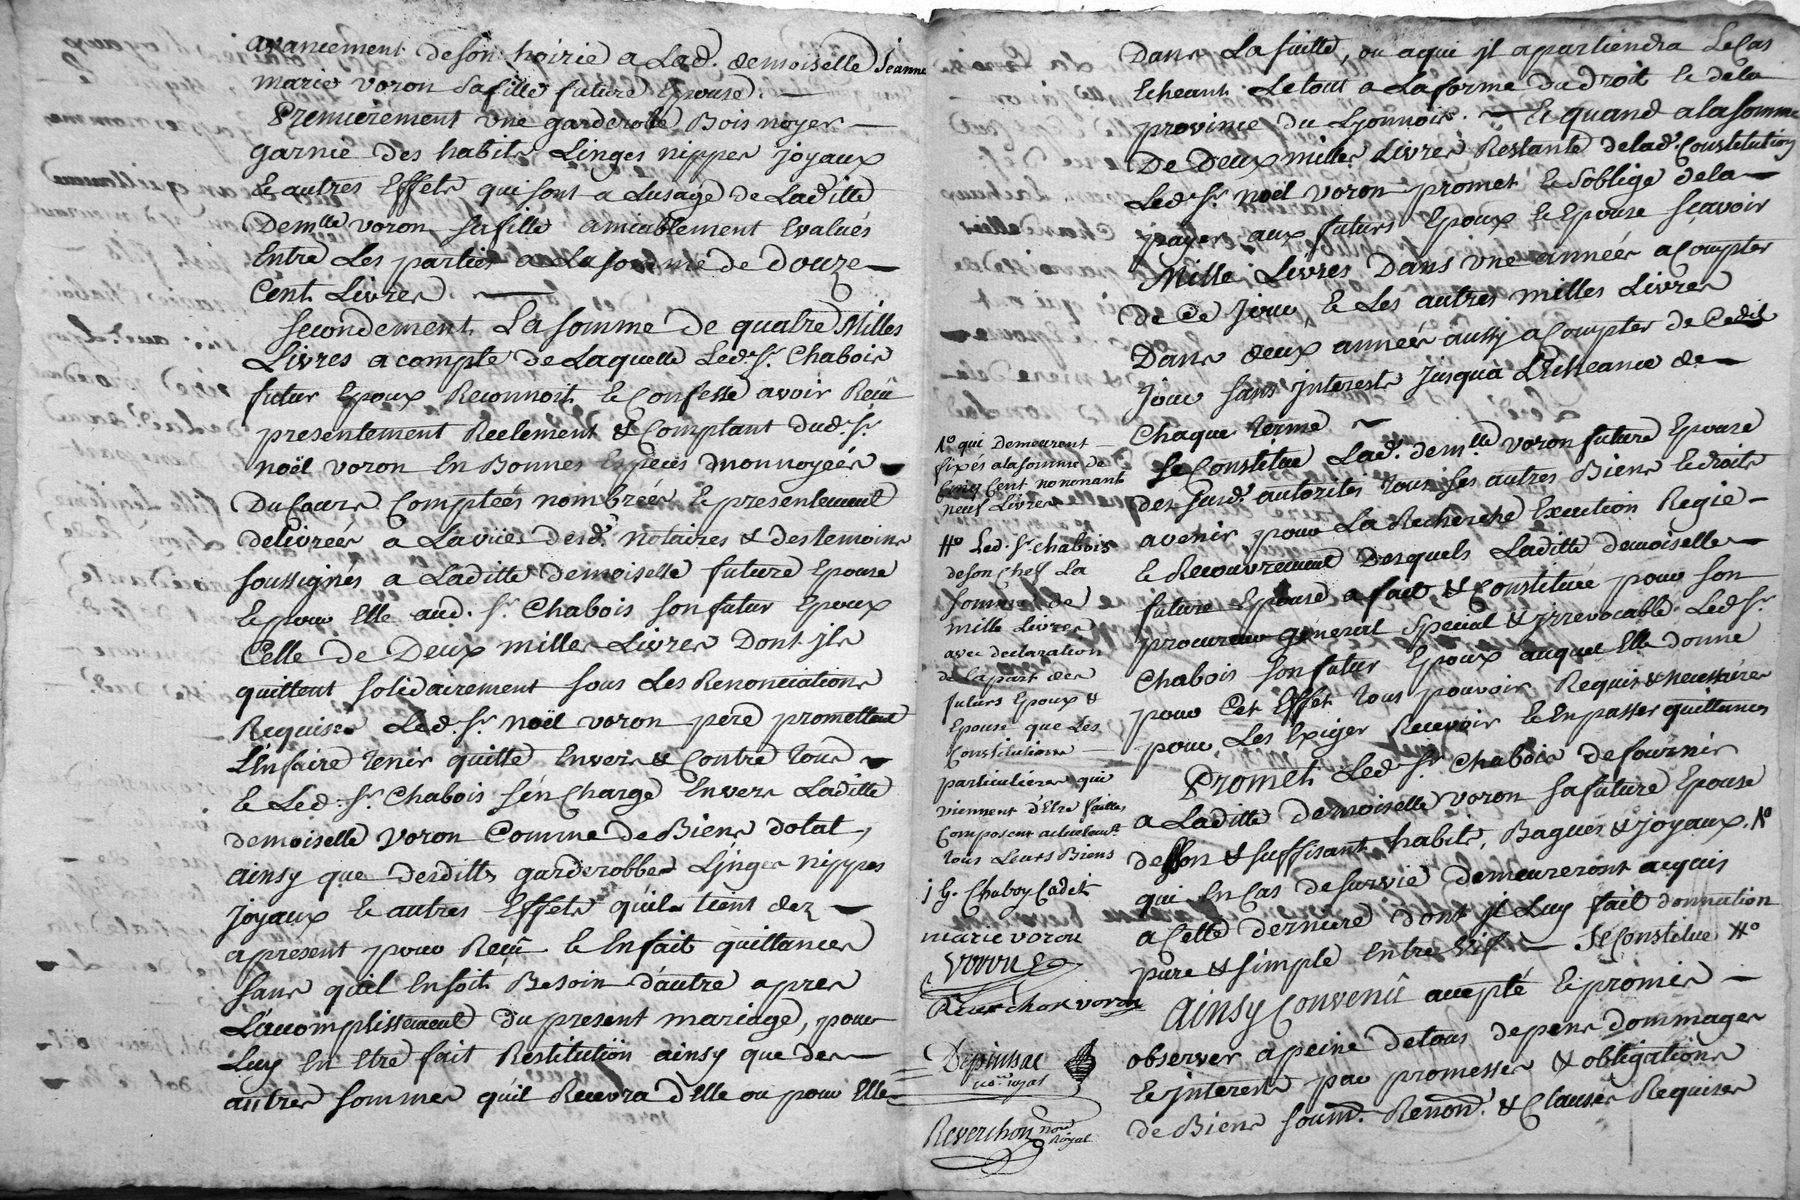 avancement de son hoirie a Lad. demoiselle Jeanne
marie voron Sa fille future Epouse. —
Premierement une garderobe Bois noyer —
garnie des habits Linges nippes joyaux
& autres Effets qui sont a Lusage de Laditte
Demlle voron sa fille amiablement Evalués
Entre Les parties a La somme de douze —
Cent Livres. —
Secondement La somme de quatre Milles
Livres a compte de Laquelle Led. Sr. Chabois
futur Epoux Reconnoit & Confesse avoir Reçû
presentement Reelement & Comptant dud. Sr.
noël voron En Bonnes Especes monnoyées
Du Cours Comptées nombrées & presentement
delivrées a La vüe desd. Notaires & des temoins
soussignés a Laditte demoiselle future Epouse
& pour Elle aud. Sr. Chabois son futur Epoux
Celle de Deux milles Livres Dont ils
quittent solidairement sous Les Renonciations
Requises Led. Sr. Noël voron pere promettant
L'En faire tenir quitte Envers & Contre tous
& Led. Sr. Chabois s'en Charge Envers Laditte
demoiselle voron Comme de Biens dotal,
ainsy que desdittes garderobbes Linges nippes
Joyaux & autres Effets qu'il tient dez —
apresent pour Reçû & En fait quittances
sans qu'il En soit Besoin d'autre apres
L'accomplissement du present mariage, pour
Luy En Etre fait Restitution ainsy que des —
autres sommes qu'il Recevra d'Elle ou pour Elle
Dans La suitte, ou a qui il apartiendra Le Cas
Echeant Le tout a La forme du droit & de la
province du Lyonnois. — Et quand a la somme
De Deux milles Livres Restante de lad. Constitution
Led. Sr. Noël voron promet & s'oblige de la —
payer aux futurs Epoux & Epouse sçavoir
Mille Livres Dans une année a Compter
de Ce jour, & Les autres milles Livres
Dans deux années aussy a Compter de Cedit
Jour sans interests jusqu'a L'Echeance de —
Chaque terme
Se Constitue Lad. demlle voron future Epouse
des susd. autorités tous ses autres Biens & droits
avenir pour La Recherche Execution Regie —
& Recouvrement Desquels Laditte demoiselle —
future Epouse a fait & Constitué pour son
procureur general special & irrevocable Led. Sr.
Chabois son futur Epoux auquel Elle donne
pour Cet Effet tous pouvoirs Requis & necessaires
pour Les Exiger Recevoir & En passer quittances
Promet Led. Sr. Chabois de fournir
a Laditte demoiselle voron sa future Epouse
de Bons & suffisants habits, Bagues & joyaux, No
qui En Cas de survie demeureront acquis
a Cette derniere dont il Luy fait donnation
pure & simple Entre vifs — Se Constitue Ho
Ainsy Convenû accepté & promis —
observer a peine de tous depens dommages
& interests par promesses & obligations
de Biens soum. Renon. & Clauses Requises
No qui Demeurent
fixés a la somme de
Cinq Cent nonante
neuf Livres
Ho Led. Sr. chabois
de son Chef La
somme de
mille Livres
avec declaration
de la part des
futurs Epoux &
Epouse que Les
Constitutions —
particulieres qui
viennent d'Etre faittes
Composent actuelemt.
tous Leurs Biens
j G. Chaboy Cadet
marie voron
voron
Reverchon voron
Depinsac
nore. royal
Reverchon nore
Royal